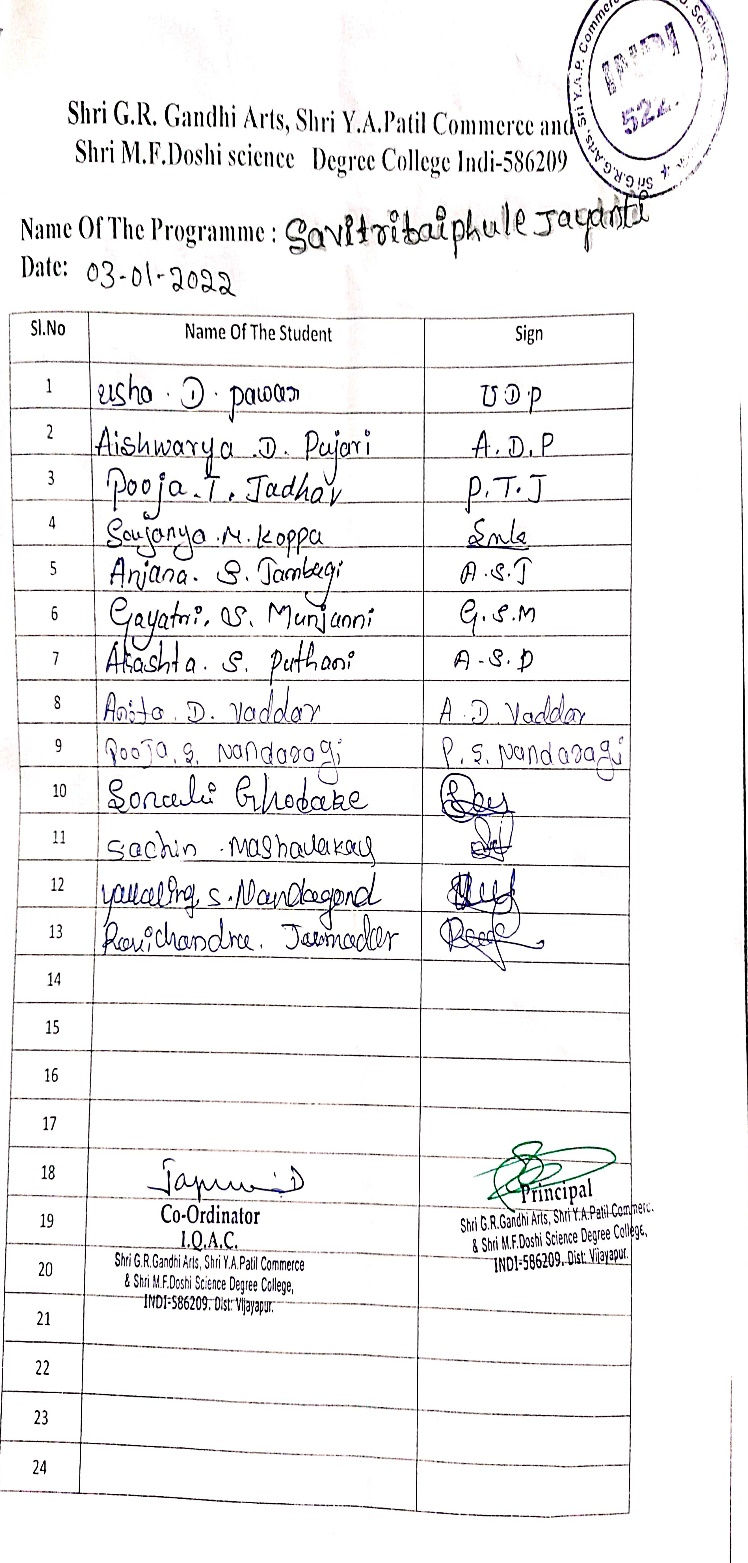 Sri G.R.G.Arts, Sri Y.A.P. Commerce
INDI
Shri G.R. Gandhi Arts, Shri Y.A.Patil Commerce and
Shri M.F.Doshi science Degree College Indi-586209
Name Of The Programme : Savitribaiphule Jayanti
Date: 03-01-2022
Sl.No Name Of The Student Sign
1 usha . D . pawar U D P
2 Aishwarya .D. Pujari A.D.P
3 Pooja.T. Jadhav P.T.J
4 Soujanya .M. Koppa Smk
5 Anjana. S. Tambagi A.S.T
6 Gayatri. S. Munjanni G.S.M
7 Akashta. S. Puthani A-S.P
8 Anita. D. Vaddar A.D Vaddar
9 Pooja. S. Nandaragi P. S. Nandaragi
10 Sonali Ghodake
11 Sachin .Mashavakay
12 S. Nandagond
13 Ravichandra. Jamadar
14
15
16
17
18
19
20
21
22
23
24
Co-Ordinator
I.Q.A.C.
Shri G.R.Gandhi Arts, Shri Y.A.Patil Commerce
& Shri M.F.Doshi Science Degree College,
INDI-586209. Dist: Vijayapur.
Principal
Shri G.R.Gandhi Arts, Shri Y.A.Patil Commerc.
& Shri M.F.Doshi Science Degree College,
INDI-586209. Dist: Vijayapur.